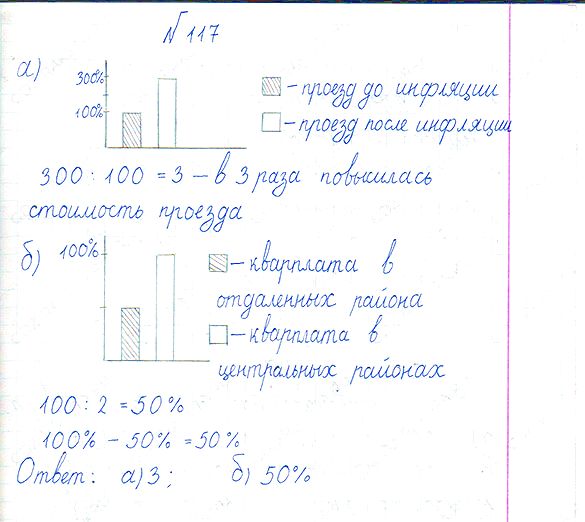 № 117
а)
300%
100%
– проезд до инфляции
– проезд после инфляции
300 : 100 = 3 – в 3 раза повысилась
стоимость проезда
б)
100%
– квартплата в
отдаленных района
– квартплата в
центральных районах
100 : 2 = 50%
100% – 50% = 50%
Ответ: а) 3; б) 50%